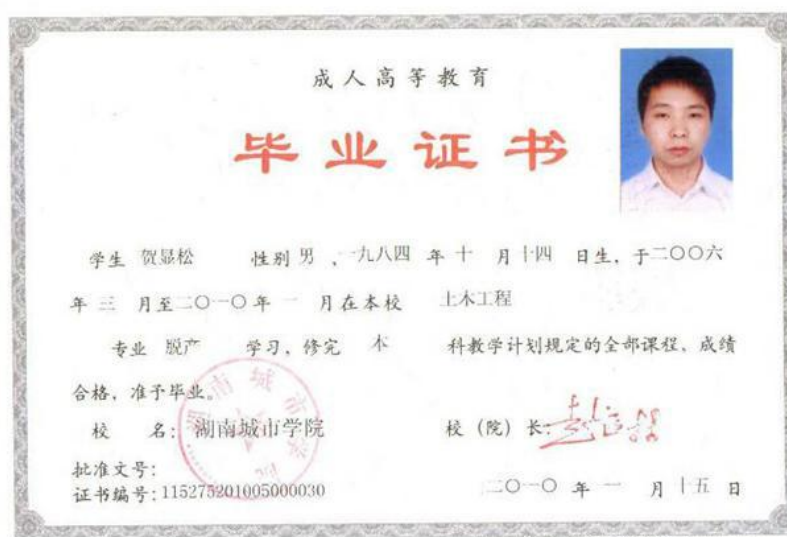 成人高等教育
毕业证书
学生 贺显松 性别 男 ,一九八四 年 十 月 十四 日生, 于二〇〇六
年 三 月至二〇一〇年 一 月在本校 土木工程
专业 脱产 学习, 修完 本 科教学计划规定的全部课程, 成绩
合格, 准予毕业。
校 名: 湖南城市学院 校(院)长:
批准文号:
证书编号: 115275201005000030 二〇一〇 年 一 月 十五 日
湖南城市学院